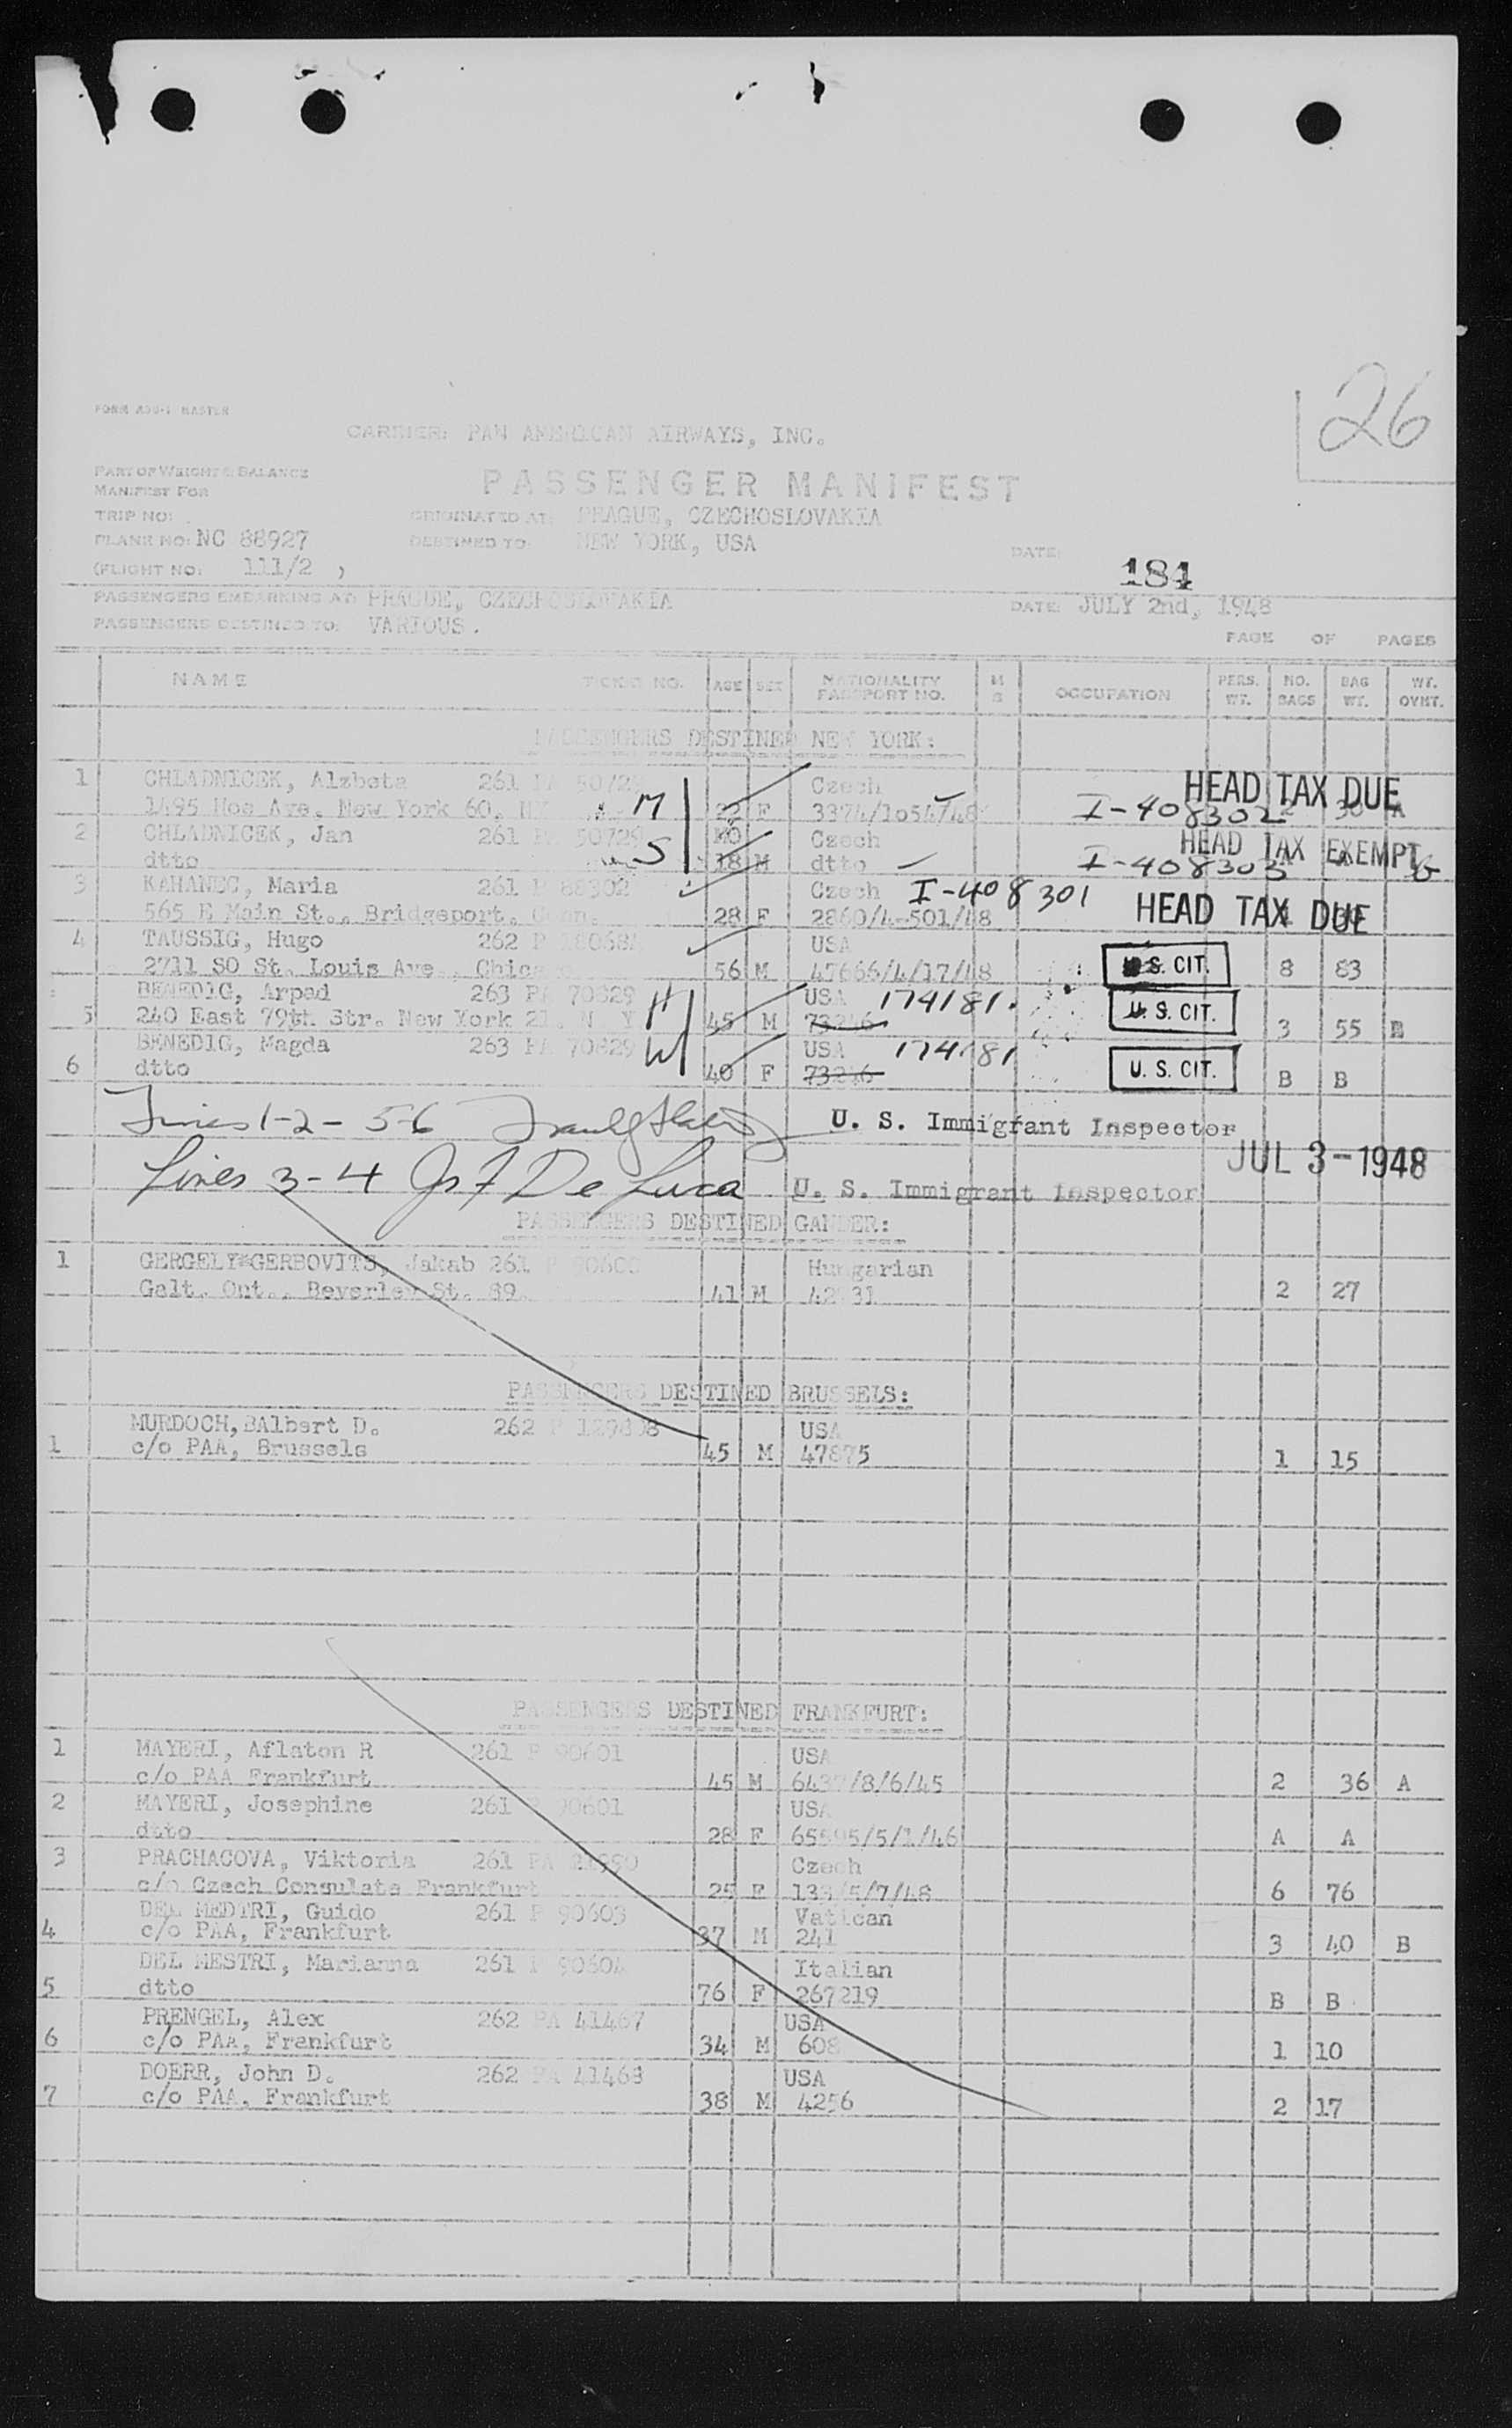 FORM MASTER
CARRIER: PAN AMERICAN AIRWAYS, INC.
26
PART OF WEIGHT & BALANCE
MANIFEST FOR
PASSENGER MANIFEST
TRIP NO:
ORIGINATED AT: PRAGUE, CZECHOSLOVAKIA
PLANE NO: NC 88927
DESTINED TO: NEW YORK, USA
DATE:
(FLIGHT NO: 111/2 )
184
PASSENGERS EMBARKING AT: PRAGUE, CZECHOSLOVAKIA
DATE: JULY 2nd, 1948
PASSENGERS DESTINED TO: VARIOUS.
PAGE OF PAGES
NAME TICKET NO. AGE SEX NATIONALITY PASSPORT NO. M S OCCUPATION PERS. WT. NO. BAGS BAG WT. WT. OVHT.
PASSENGERS DESTINED NEW YORK:
1 CHLADNICEK, Alzbeta 261 PA 50729 Czech HEAD TAX DUE
1495 Hoe Ave. New York 60, NY M 22 F 3374/1054/48 I-408302 2 30 A
2 CHLADNICEK, Jan 261 50729 MO Czech HEAD TAX EXEMPT
dtto S 18 M dtto I-408303
3 KAHANEC, Maria 261 P 88302 Czech I-408301
565 E Main St., Bridgeport, Conn. 28 F 2860/4-501/48 HEAD TAX DUE
4 TAUSSIG, Hugo 262 P USA
2711 SO St. Louis Ave., Chic 56 M 47666/4/17/48 U. S. CIT. 8 83
BENEDIG, Arpad 263 PA 70829 H USA 174181.
5 240 East 79th Str. New York 21. N Y 45 M 73246 U. S. CIT. 3 55 B
BENEDIG, Magda 263 PA 70829 W USA 174181
6 dtto 40 F 73246 U. S. CIT. B B
Lines 1-2-5-6 U. S. Immigrant Inspector
JUL 3-1948
Lines 3-4 Jos F De Luca U. S. Immigrant Inspector
PASSENGERS DESTINED GANDER:
1 GERGELY-GERBOVITS, Jakab 261 P 90600 Hungarian
Galt. Ont., Beverley St. 89. 41 M 42 31 2 27
PASSENGERS DESTINED BRUSSELS:
MURDOCH, Albert D. 262 P USA
1 c/o PAA, Brussels 45 M 47875 1 15
PASSENGERS DESTINED FRANKFURT:
1 MAYERI, Aflaton R 261 P 90601 USA
c/o PAA Frankfurt 45 M 6437/8/6/45 2 36 A
2 MAYERI, Josephine 261 P 90601 USA
dtto 28 F 65595/5/1/46 A A
3 PRACHACOVA, Viktoria 261 PA Czech
c/o Czech Consulate Frankfurt 25 F 6 76
DEL MEDTRI, Guido 261 P 90603 Vatican
4 c/o PAA, Frankfurt 37 M 241 3 40 B
DEL MESTRI, Marianna 261 P 90604 Italian
5 dtto 76 F 267219 B B
PRENGEL, Alex 262 PA 41467 USA
6 c/o PAA, Frankfurt 34 M 608 1 10
DOERR, John D. 262 PA 41468 USA
7 c/o PAA, Frankfurt 38 M 4256 2 17